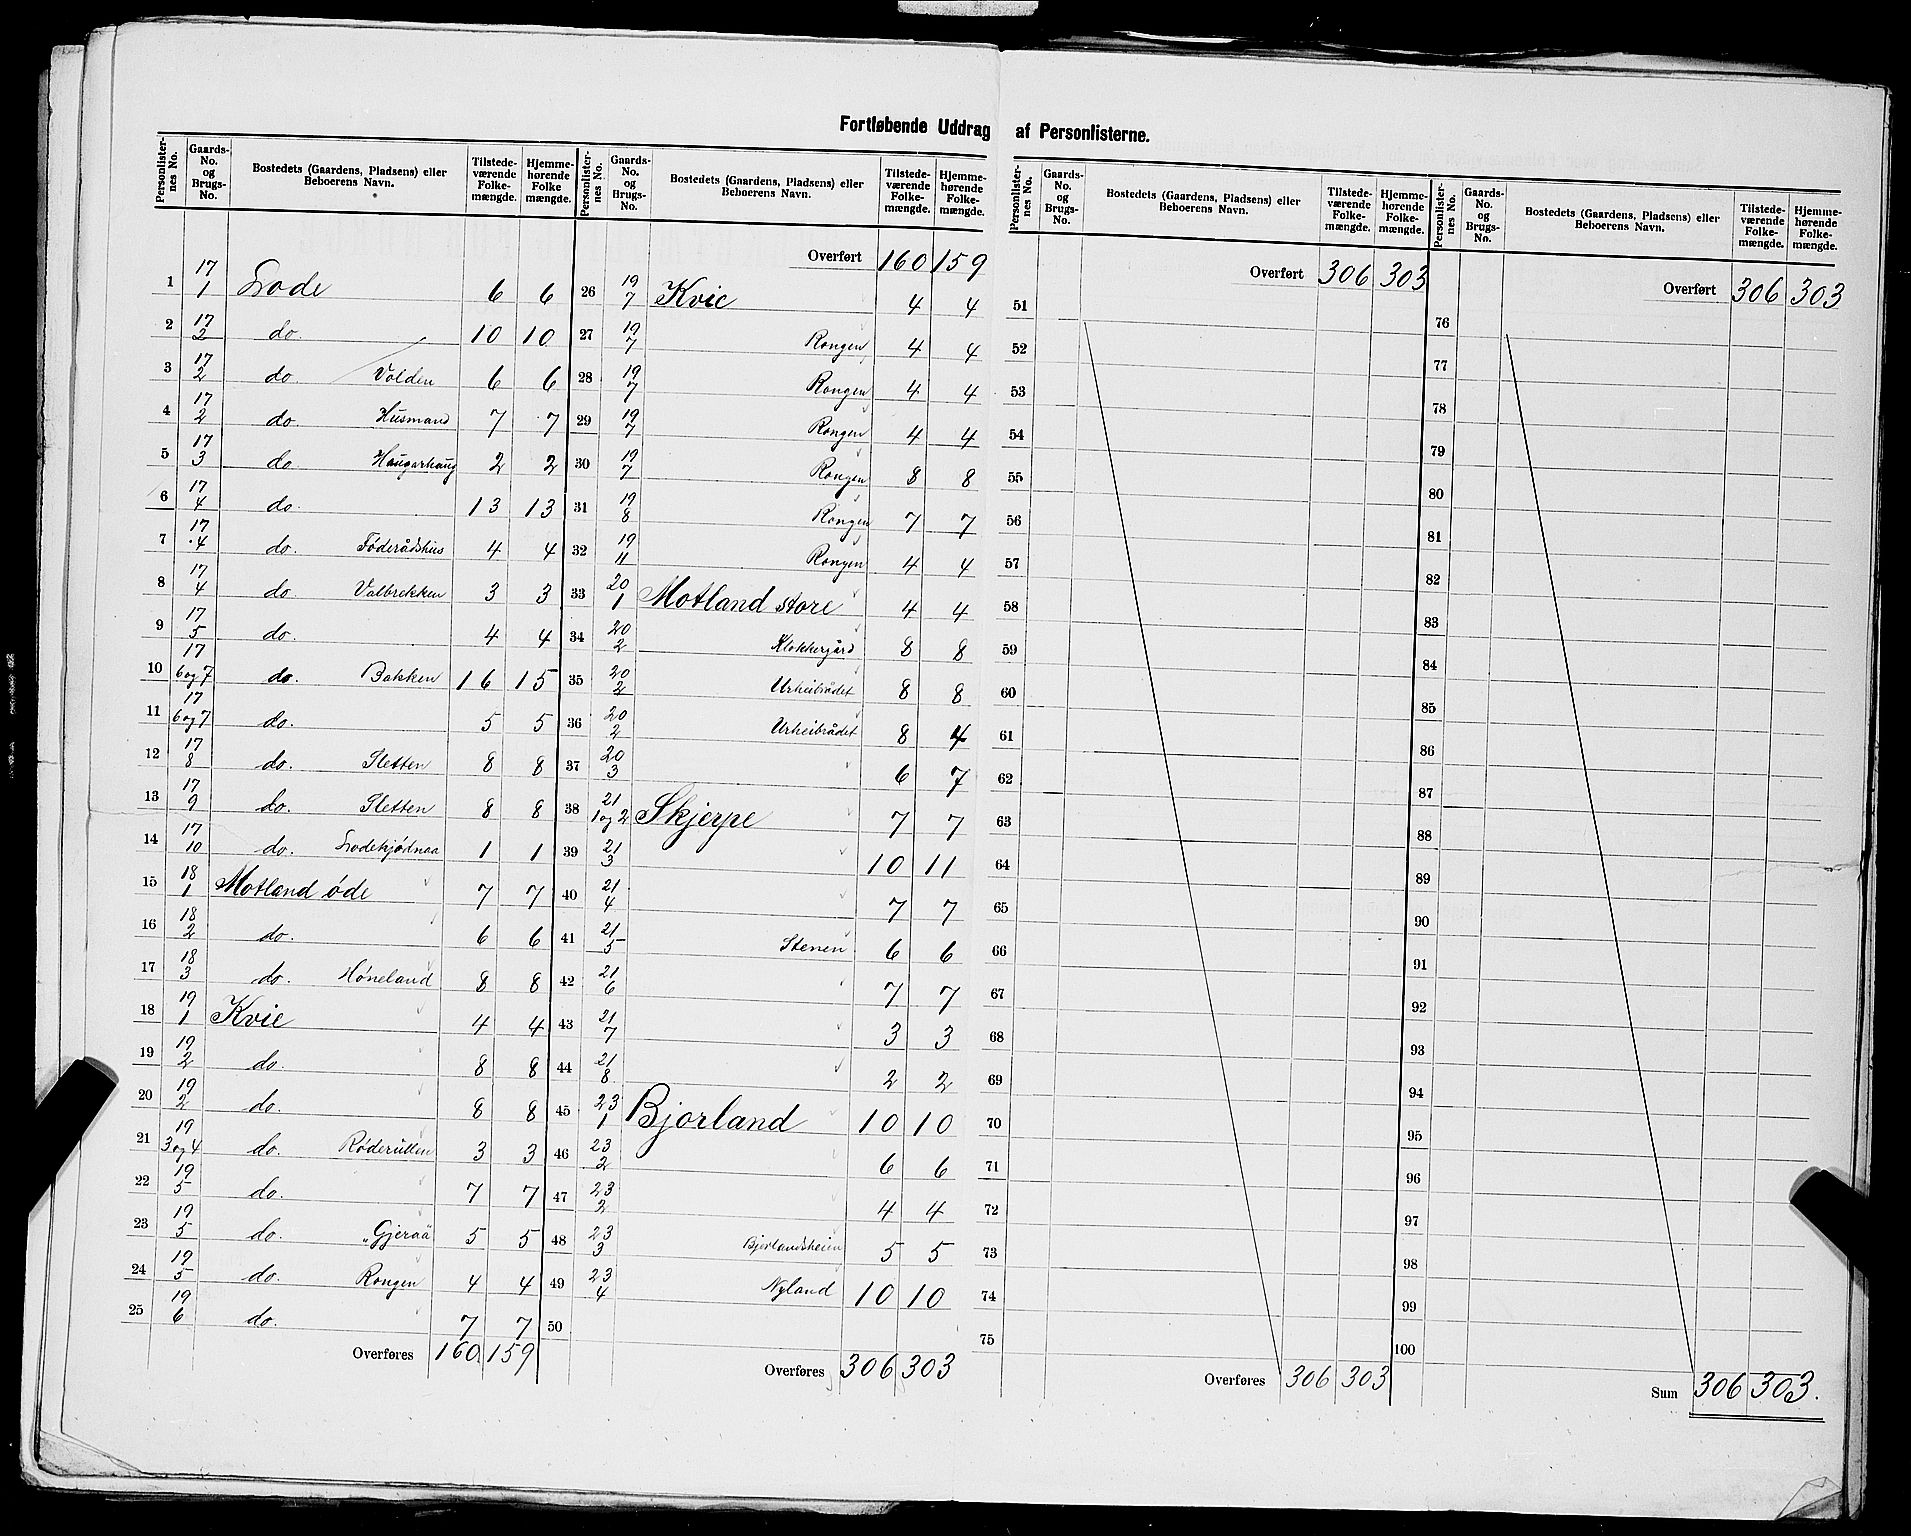 Fortløbende Uddrag af Personlisterne.
Personlister-nes No. | Gaards-No. og Brugs-No. | Bostedets (Gaardens, Pladsens) eller Beboerens Navn. | Tilstede-værende Folke-mængde. | Hjemme-hørende Folke mængde.
1 17/1 Lode 6 6
2 17/2 do. 10 10
3 17/2 do. Volden 6 6
4 17/2 do Husmand 7 7
5 17/3 do. Haugarhaug 2 2
6 17/4 do. 13 13
7 17/4 do. Føderådshus 4 4
8 17/4 do. Valbrekken 3 3
9 17/5 do. 4 4
10 17/6 og 7 do. Bakken 16 15
11 17/6 og 7 do. 5 5
12 17/8 do. Sletten 8 8
13 17/9 do. Sletten 8 8
14 17/10 do. Lodekjødnaa 1 1
15 18/1 Motland øde 7 7
16 18/2 do. 6 6
17 18/3 do. Høneland 8 8
18 19/1 Kvie 4 4
19 19/2 do. 8 8
20 19/2 do. 8 8
21 19/3 og 4 do. Røderutten 3 3
22 19/5 do. 7 7
23 19/5 do. Gjeraa 5 5
24 19/5 do. Rongen 4 4
25 19/6 do. 7 7
Overføres 160 159
Personlister-nes No. | Gaards-No. og Brugs-No. | Bostedets (Gaardens, Pladsens) eller Beboerens Navn. | Tilstede-værende Folke-mængde. | Hjemme-hørende Folke-mængde.
Overført 160 159
26 19/7 Kvie 4 4
27 19/7 Rongen 4 4
28 19/7 Rongen 4 4
29 19/7 Rongen 4 4
30 19/7 Rongen 8 8
31 19/8 Rongen 7 7
32 19/11 Rongen 4 4
33 20/1 Motland store 4 4
34 20/2 Klokkergård 8 8
35 20/2 Urheibrådet 8 8
36 20/2 Urheibrådet 8 4
37 20/3 6 7
38 21/1 og 2 Skjerpe 7 7
39 21/3 10 11
40 21/4 7 7
41 21/5 Stenen 6 6
42 21/6 7 7
43 21/7 3 3
44 21/8 2 2
45 23/1 Bjorland 10 10
46 23/2 6 6
47 23/2 4 4
48 23/3 Bjorlandsheien 5 5
49 23/4 Nyland 10 10
50
Overføres 306 303
Personlister-nes No. | Gaards-No. og Brugs-No. | Bostedets (Gaardens, Pladsens) eller Beboerens Navn. | Tilstede-værende Folke-mængde. | Hjemme-hørende Folke-mængde.
Overført 306 303
51
52
53
54
55
56
57
58
59
60
61
62
63
64
65
66
67
68
69
70
71
72
73
74
75
Overføres 306 303
Personlister-nes No. | Gaards-No. og Brugs-No. | Bostedets (Gaardens, Pladsens) eller Beboerens Navn. | Tilstede-værende Folke-mængde. | Hjemme-hørende Folke-mængde.
Overført 306 303
76
77
78
79
80
81
82
83
84
85
86
87
88
89
90
91
92
93
94
95
96
97
98
99
100
Sum 306 303.